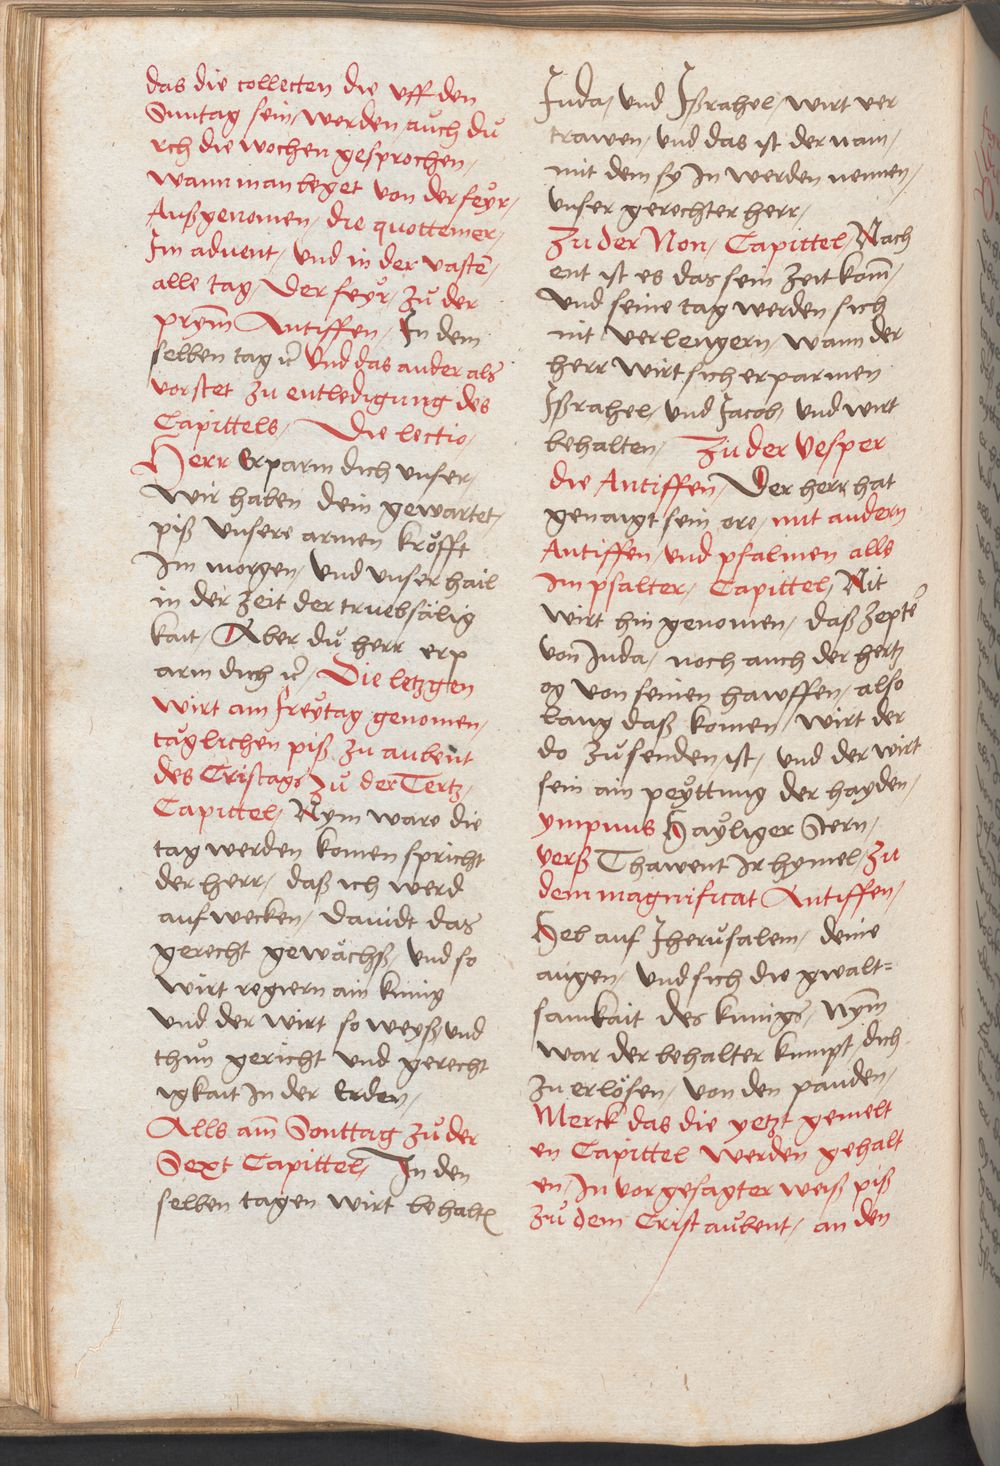 das die collecten die uff den
Suntag sein, werden auch du
rch die wochen gesprochen,
wann man beget von der feyr,
Außgenomen, die quottemer,
Im advent, und in der vasten,
alle tag, Der feyr, zu der
prym Antiffen, In dem
selben tag und das ander als
vorstet zu entledigung des
Capittels, Die lectio,
Herr Erparm dich unser,
wir haben dein gewartet,
piß unsere armen kröfft
Im morgen, und unser hail
in der zeit der truebsälig
kait, Aber du herr erp
arm dich Die letzgen
wirt am freytag genomen,
täglichen piß zu aubent
des Cristags zu der Tertz,
Capittel, Nym ware die
tag werden komen spricht
der herr, daß ich werd
auf wecken, Dauidt das
gerecht gewächß, und so
wirt regiern ain kunig
und der wirt so weyß und
thun gericht und gerecht
igkait In der Erden,
Alls am Sonttag zu der
Sext Capittel, In den
selben tagen wirt behalten
Juda, und Jßrahel, wirt ver
trawen, und das ist der nam,
mit dem sy In werden nennen,
unser gerechter herr,
Zu der Non, Capittel, Nach
ent ist es das sein zeit kom,
und seine tag werden sich
nit verlengern, wann der
herr wirt sich erparmen
Jßrahel, und Jacob, und wirt
behalten, Zu der Vesper
die Antiffen, Der herr hat
genaigt sein ore, mit andern
Antiffen, und psalmen alls
Im psalter, Capittel, Nit
wirt hin genomen, daß zepter
von Juda, noch auch der hertz
og von seinen hawffen, also
lang daß komen wirt der
do zu senden ist, und der wirt
sein ain peyttung der hayden,
ympnus Hayliger Stern,
verß Thawent Ir hymel, Zu
dem magnificat Antiffen,
Heb auf Jherusalem, deine
augen, und sich die gwalt=
samkait des kunigs, Nym
war der behalter kumpt, dich
zu erlösen, von den panden,
Merck das die yetzt gemelt
en Capittel werden gehalt
en, In vorgesagter weiß piß
zu dem Crist aubent, an den